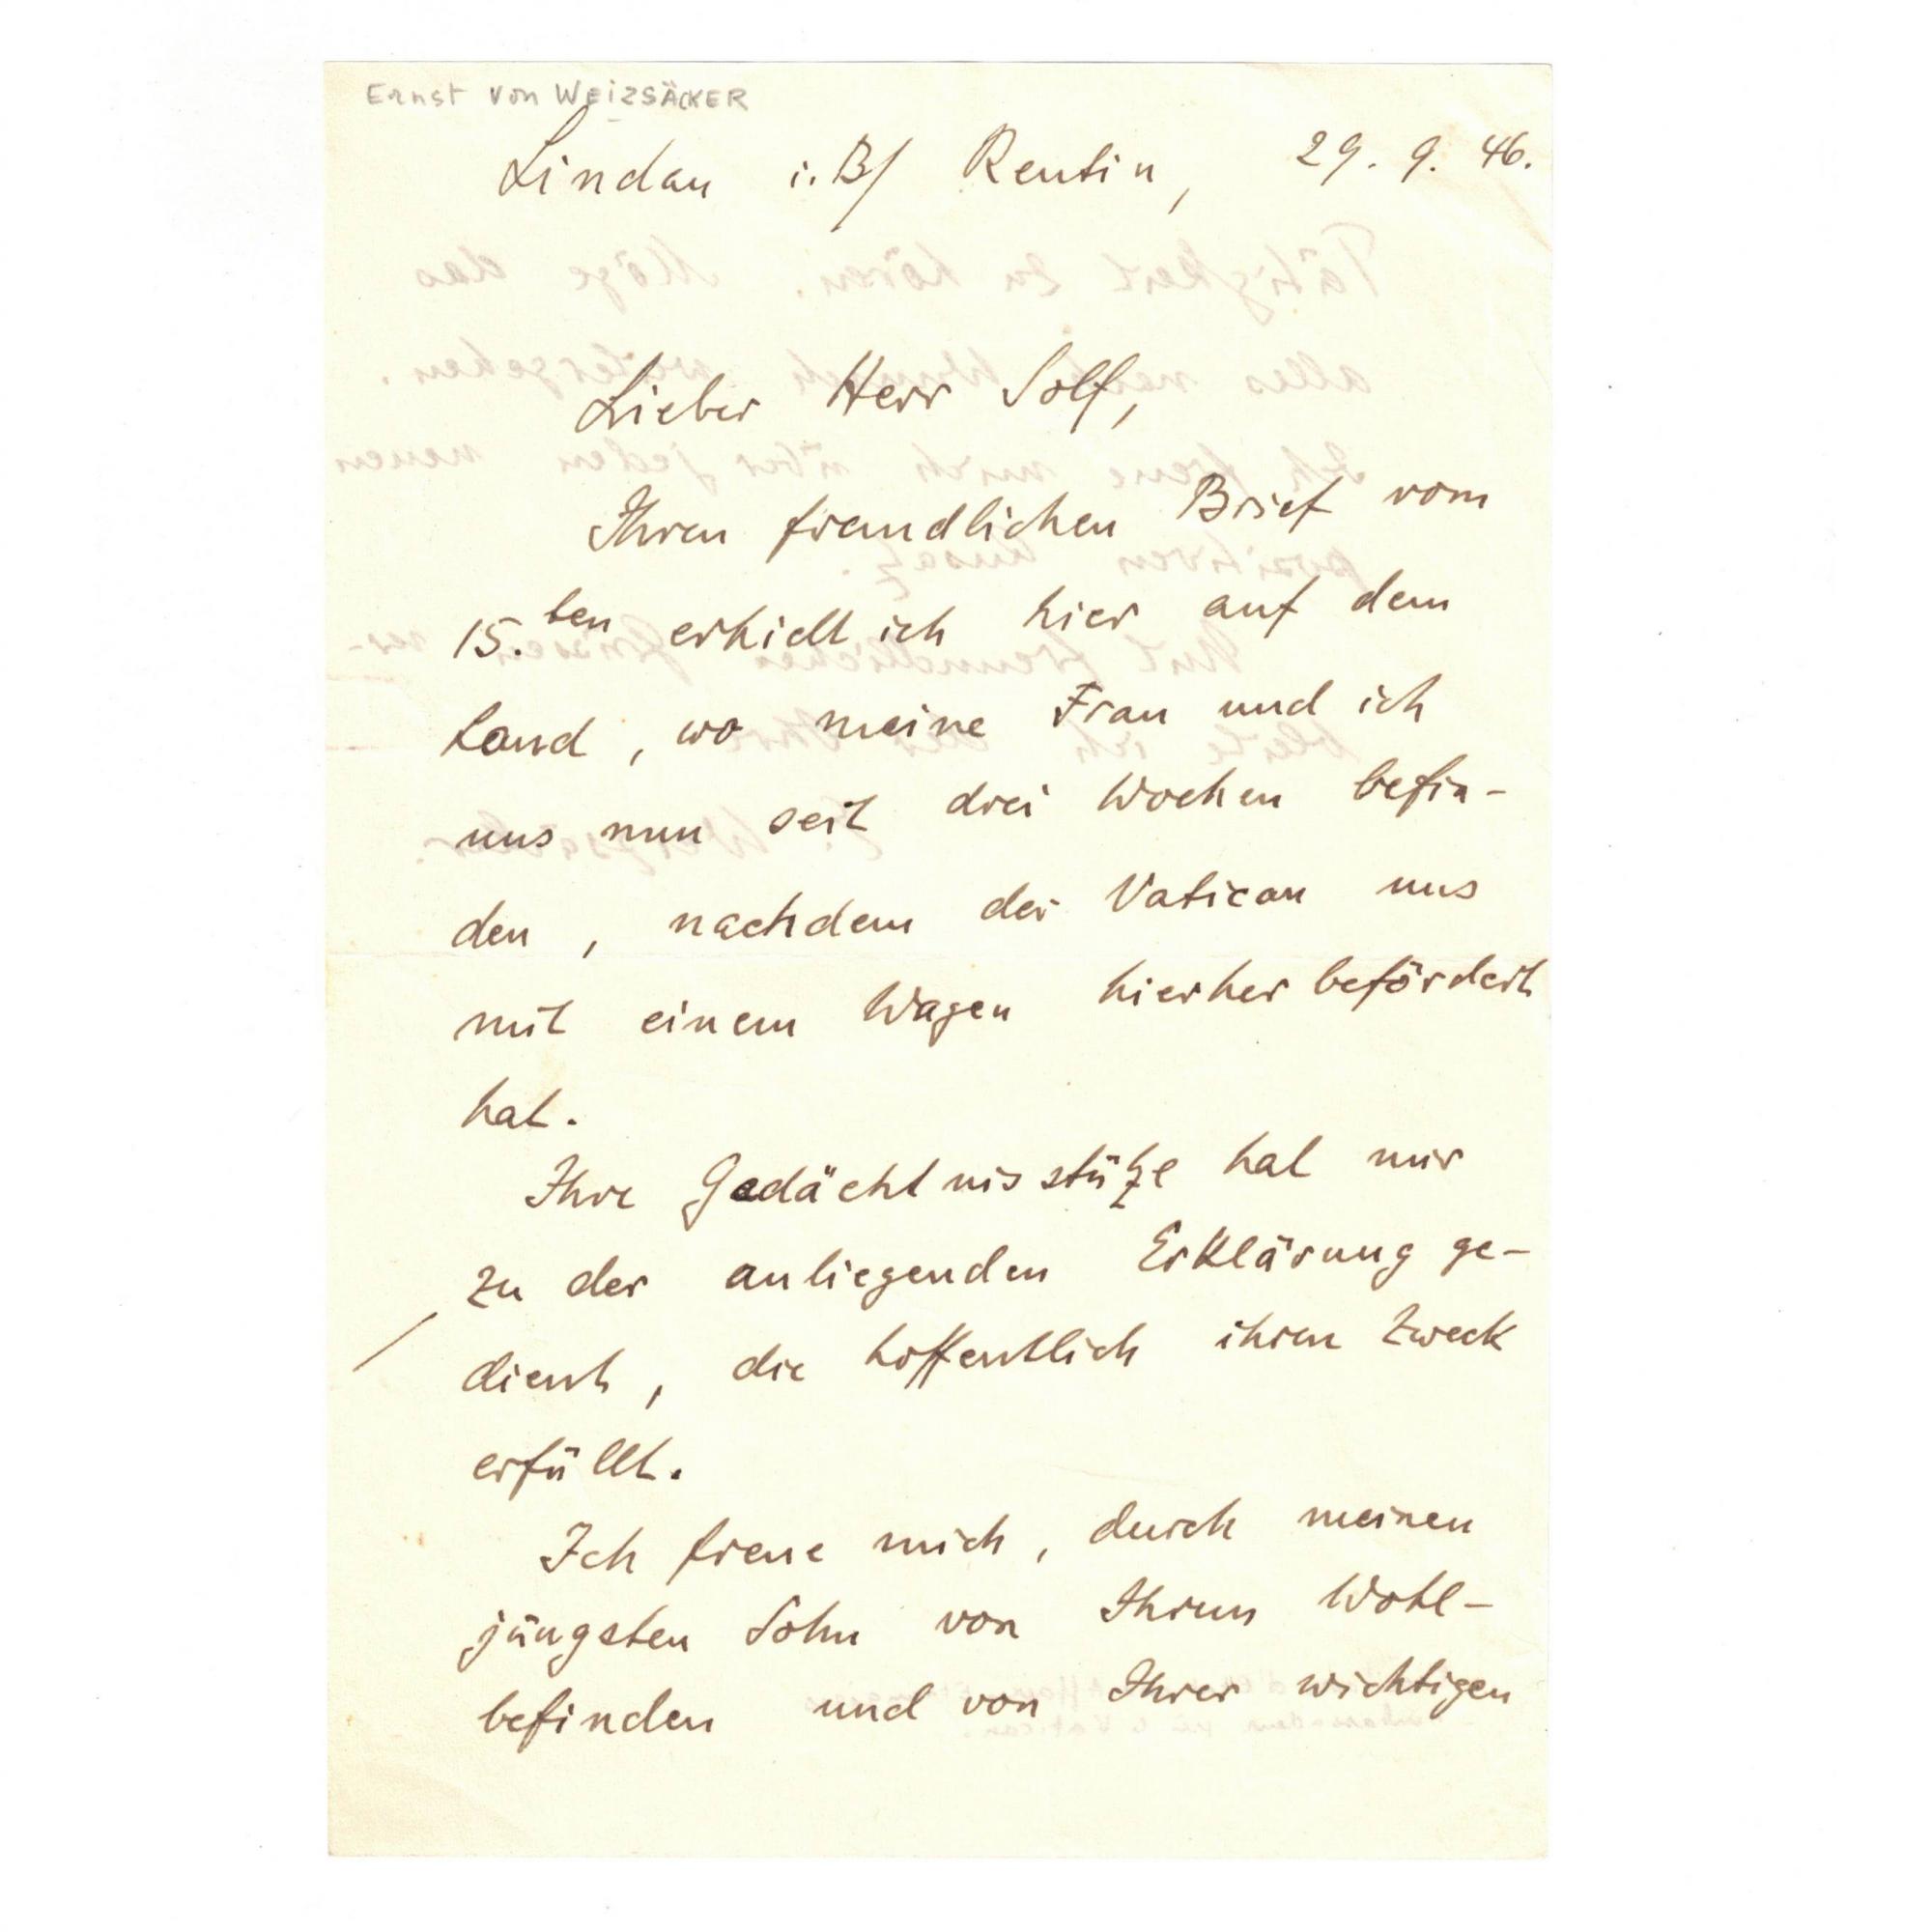 Ernst von WEIZSÄCKER
Lindau i. B/ Reutin, 29. 9. 46.
Lieber Herr Solf,
Ihren freundlichen Brief vom
15.ten erhielt ich hier auf dem
Land, wo meine Frau und ich
uns nun seit drei Wochen befin-
den, nachdem der Vatican uns
mit einem Wagen hierher befördert
hat.
Ihre Gedächtnisstütze hat mir
zu der anliegenden Erklärung ge-
dient, die hoffentlich ihren Zweck
erfüllt.
Ich freue mich, durch meinen
jüngsten Sohn von Ihrem Wohl-
befinden und von Ihrer wichtigen